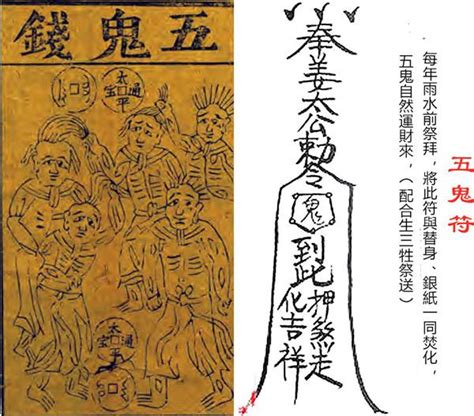 五鬼錢
太平通宝
太平通宝
奉姜太公勅令
鬼
到此押煞走
化吉祥
五鬼符
每年雨水前祭拜，將此符與替身、銀紙一同焚化，
五鬼自然運財來，（配合生三牲祭送）